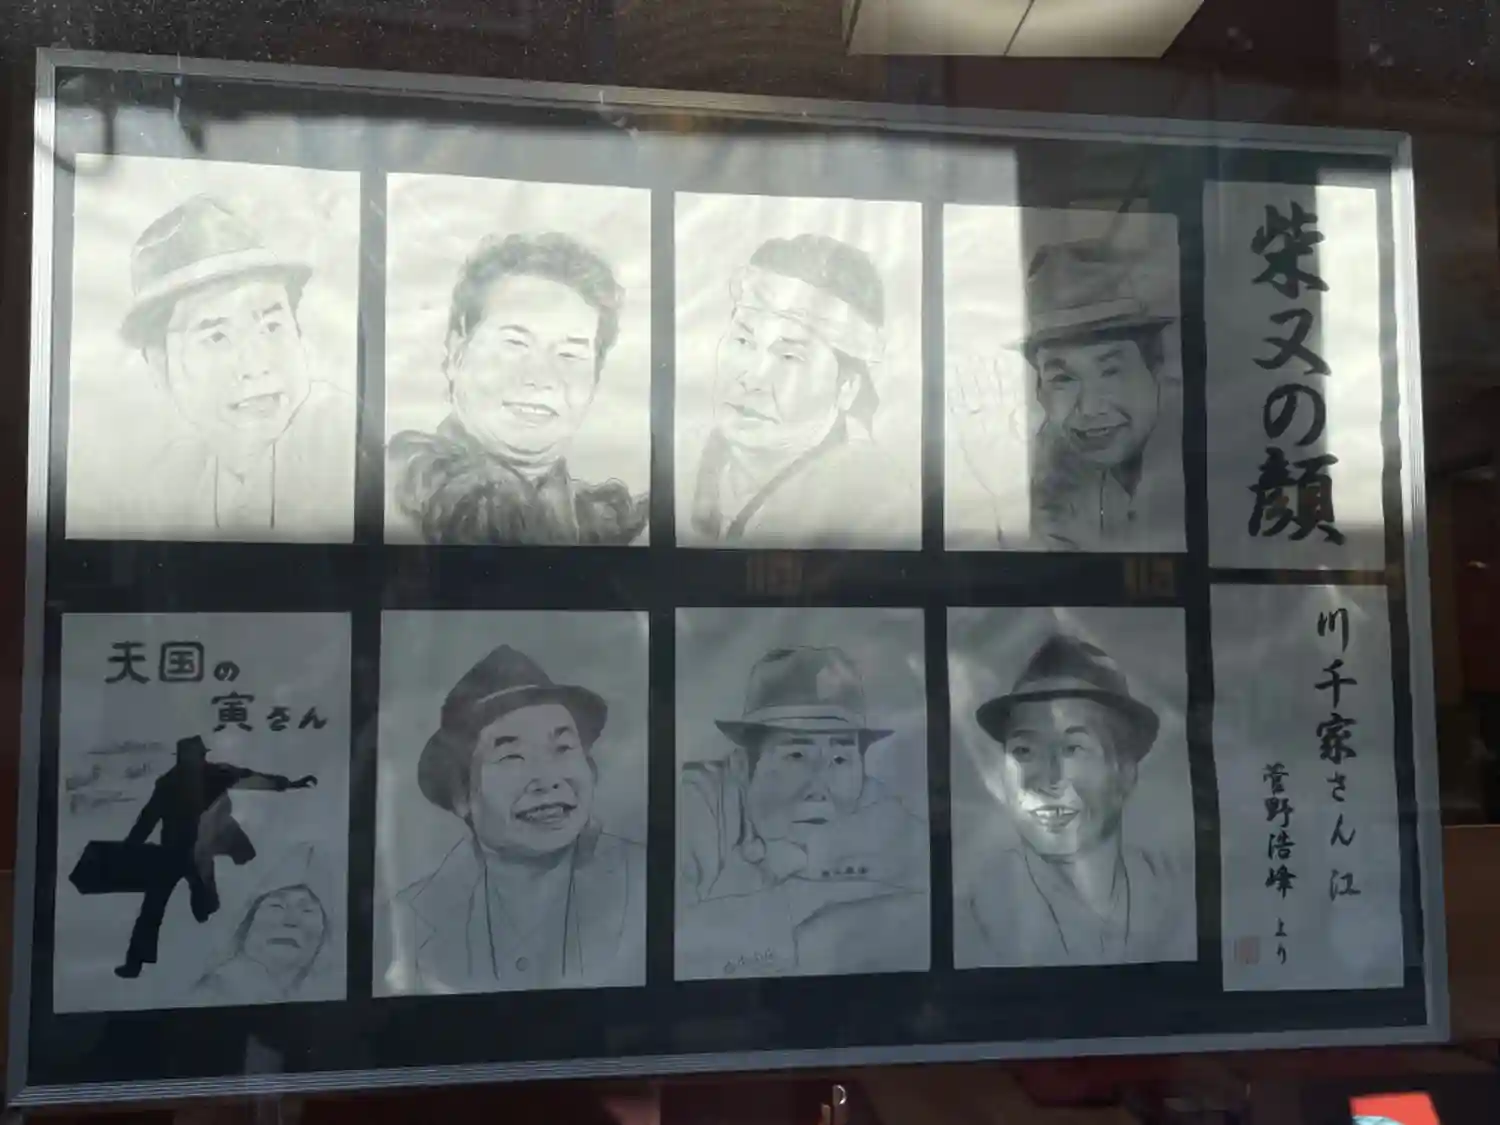 柴又の顔
川千家さん江
菅野浩峰より
天国の
寅さん